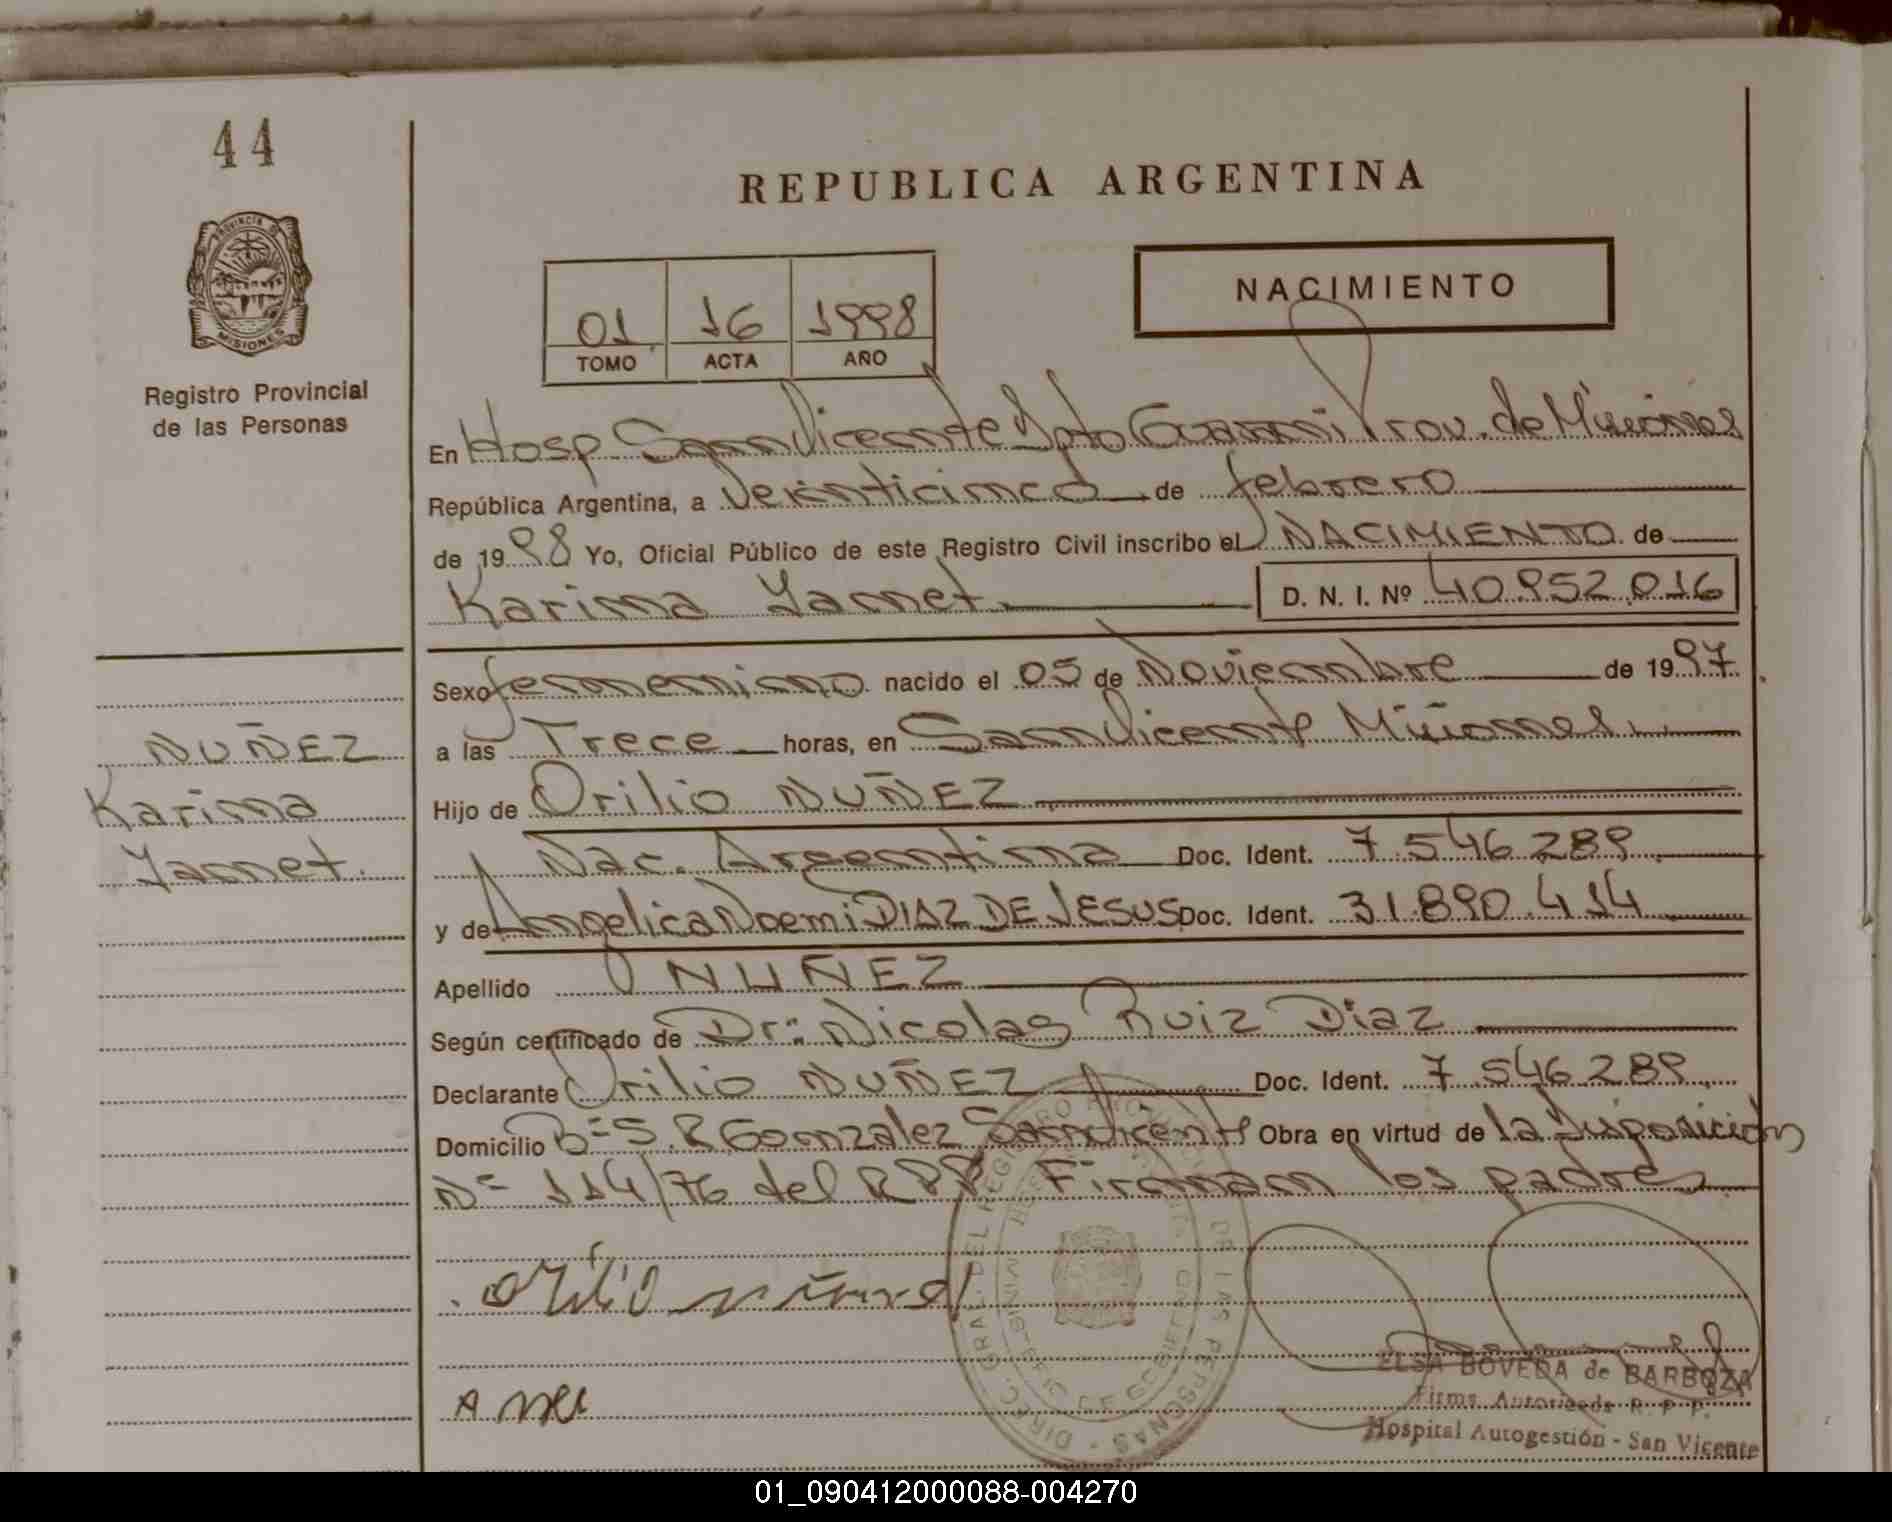 44
PROVINCIA DE
MISIONES
Registro Provincial
de las Personas
REPUBLICA ARGENTINA
NACIMIENTO
01 16 1998
TOMO ACTA AÑO
En Hosp San Vicente Dpto Guarani Prov. de Misiones
República Argentina, a Veinticinco de febrero
de 1998 Yo, Oficial Público de este Registro Civil inscribo el NACIMIENTO de
Karina Yanet D. N. I. Nº 40.952.016
Sexo femenino nacido el 05 de Noviembre de 1997
a las Trece horas, en San Vicente Misiones
Hijo de Orilio NUÑEZ
Nac. Argentina Doc. Ident. 7.546.289
y de Angelica Noemi DIAZ DE JESUS Doc. Ident. 31.890.414
Apellido NUÑEZ
Según certificado de Dr: Nicolas Ruiz Diaz
Declarante Orilio NUÑEZ Doc. Ident. 7.546.289
Domicilio B= S. R Gonzalez San Vicente Obra en virtud de la Disposición
N= 114/76 del RPP. Firman los padres
NUÑEZ
Karina
Yanet.
orilio nuñez
ELSA BOVEDA de BARBOZA
Firma Autorizada R. P. P.
Hospital Autogestión - San Vicente
01_090412000088-004270